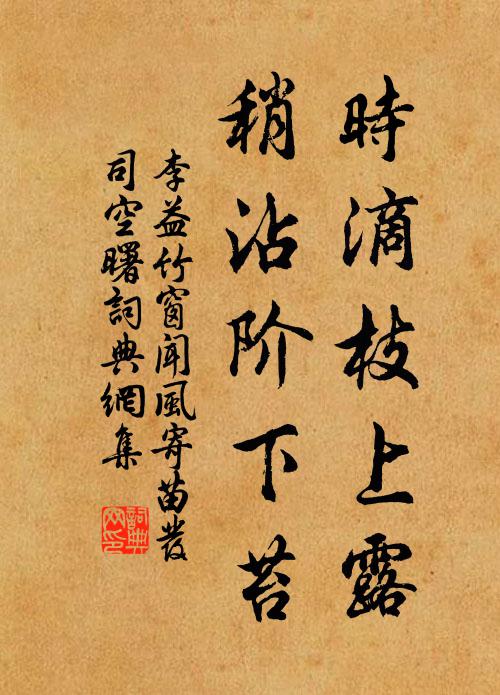 時滴枝上露
稍沾阶下苔
李益竹窗聞風寄苗發
司空曙詞典網集
詞典
网印